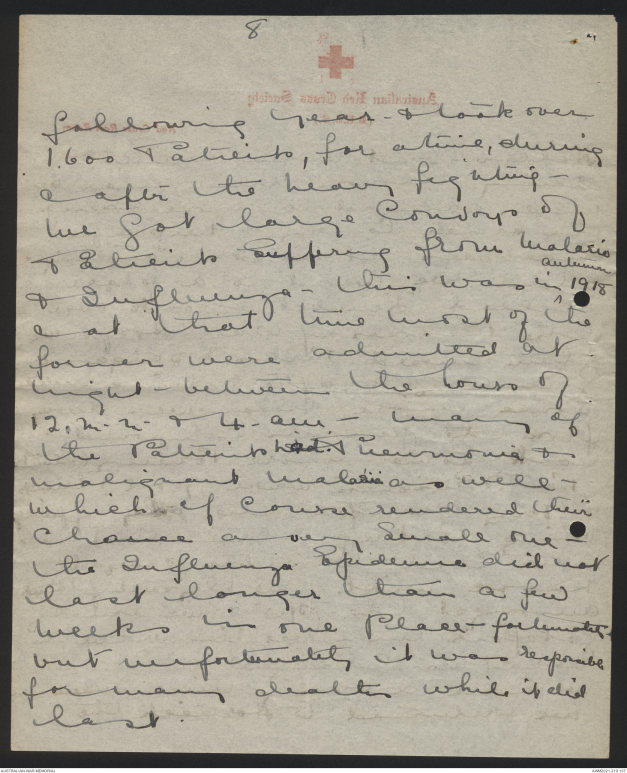 8
Australian Red Cross Society
following year - & took over
1.600 Patients, for a time, during
& after the heavy fighting -
We got large Convoys of
Patients suffering from Malaria
& Influenza - this was in autumn 1918
& at that time most of the
former were admitted at
night - between the hours of
12, m.n. & 4. am. - many of
the Patients had Pneumonia &
malignant malaria as well -
which of course rendered their
chance a very small one -
the Influenza Epidemic did not
last longer than a few
weeks in one Place - fortunately -
but unfortunately it was responsible
for many deaths while it did
last.
AUSTRALIAN WAR MEMORIAL